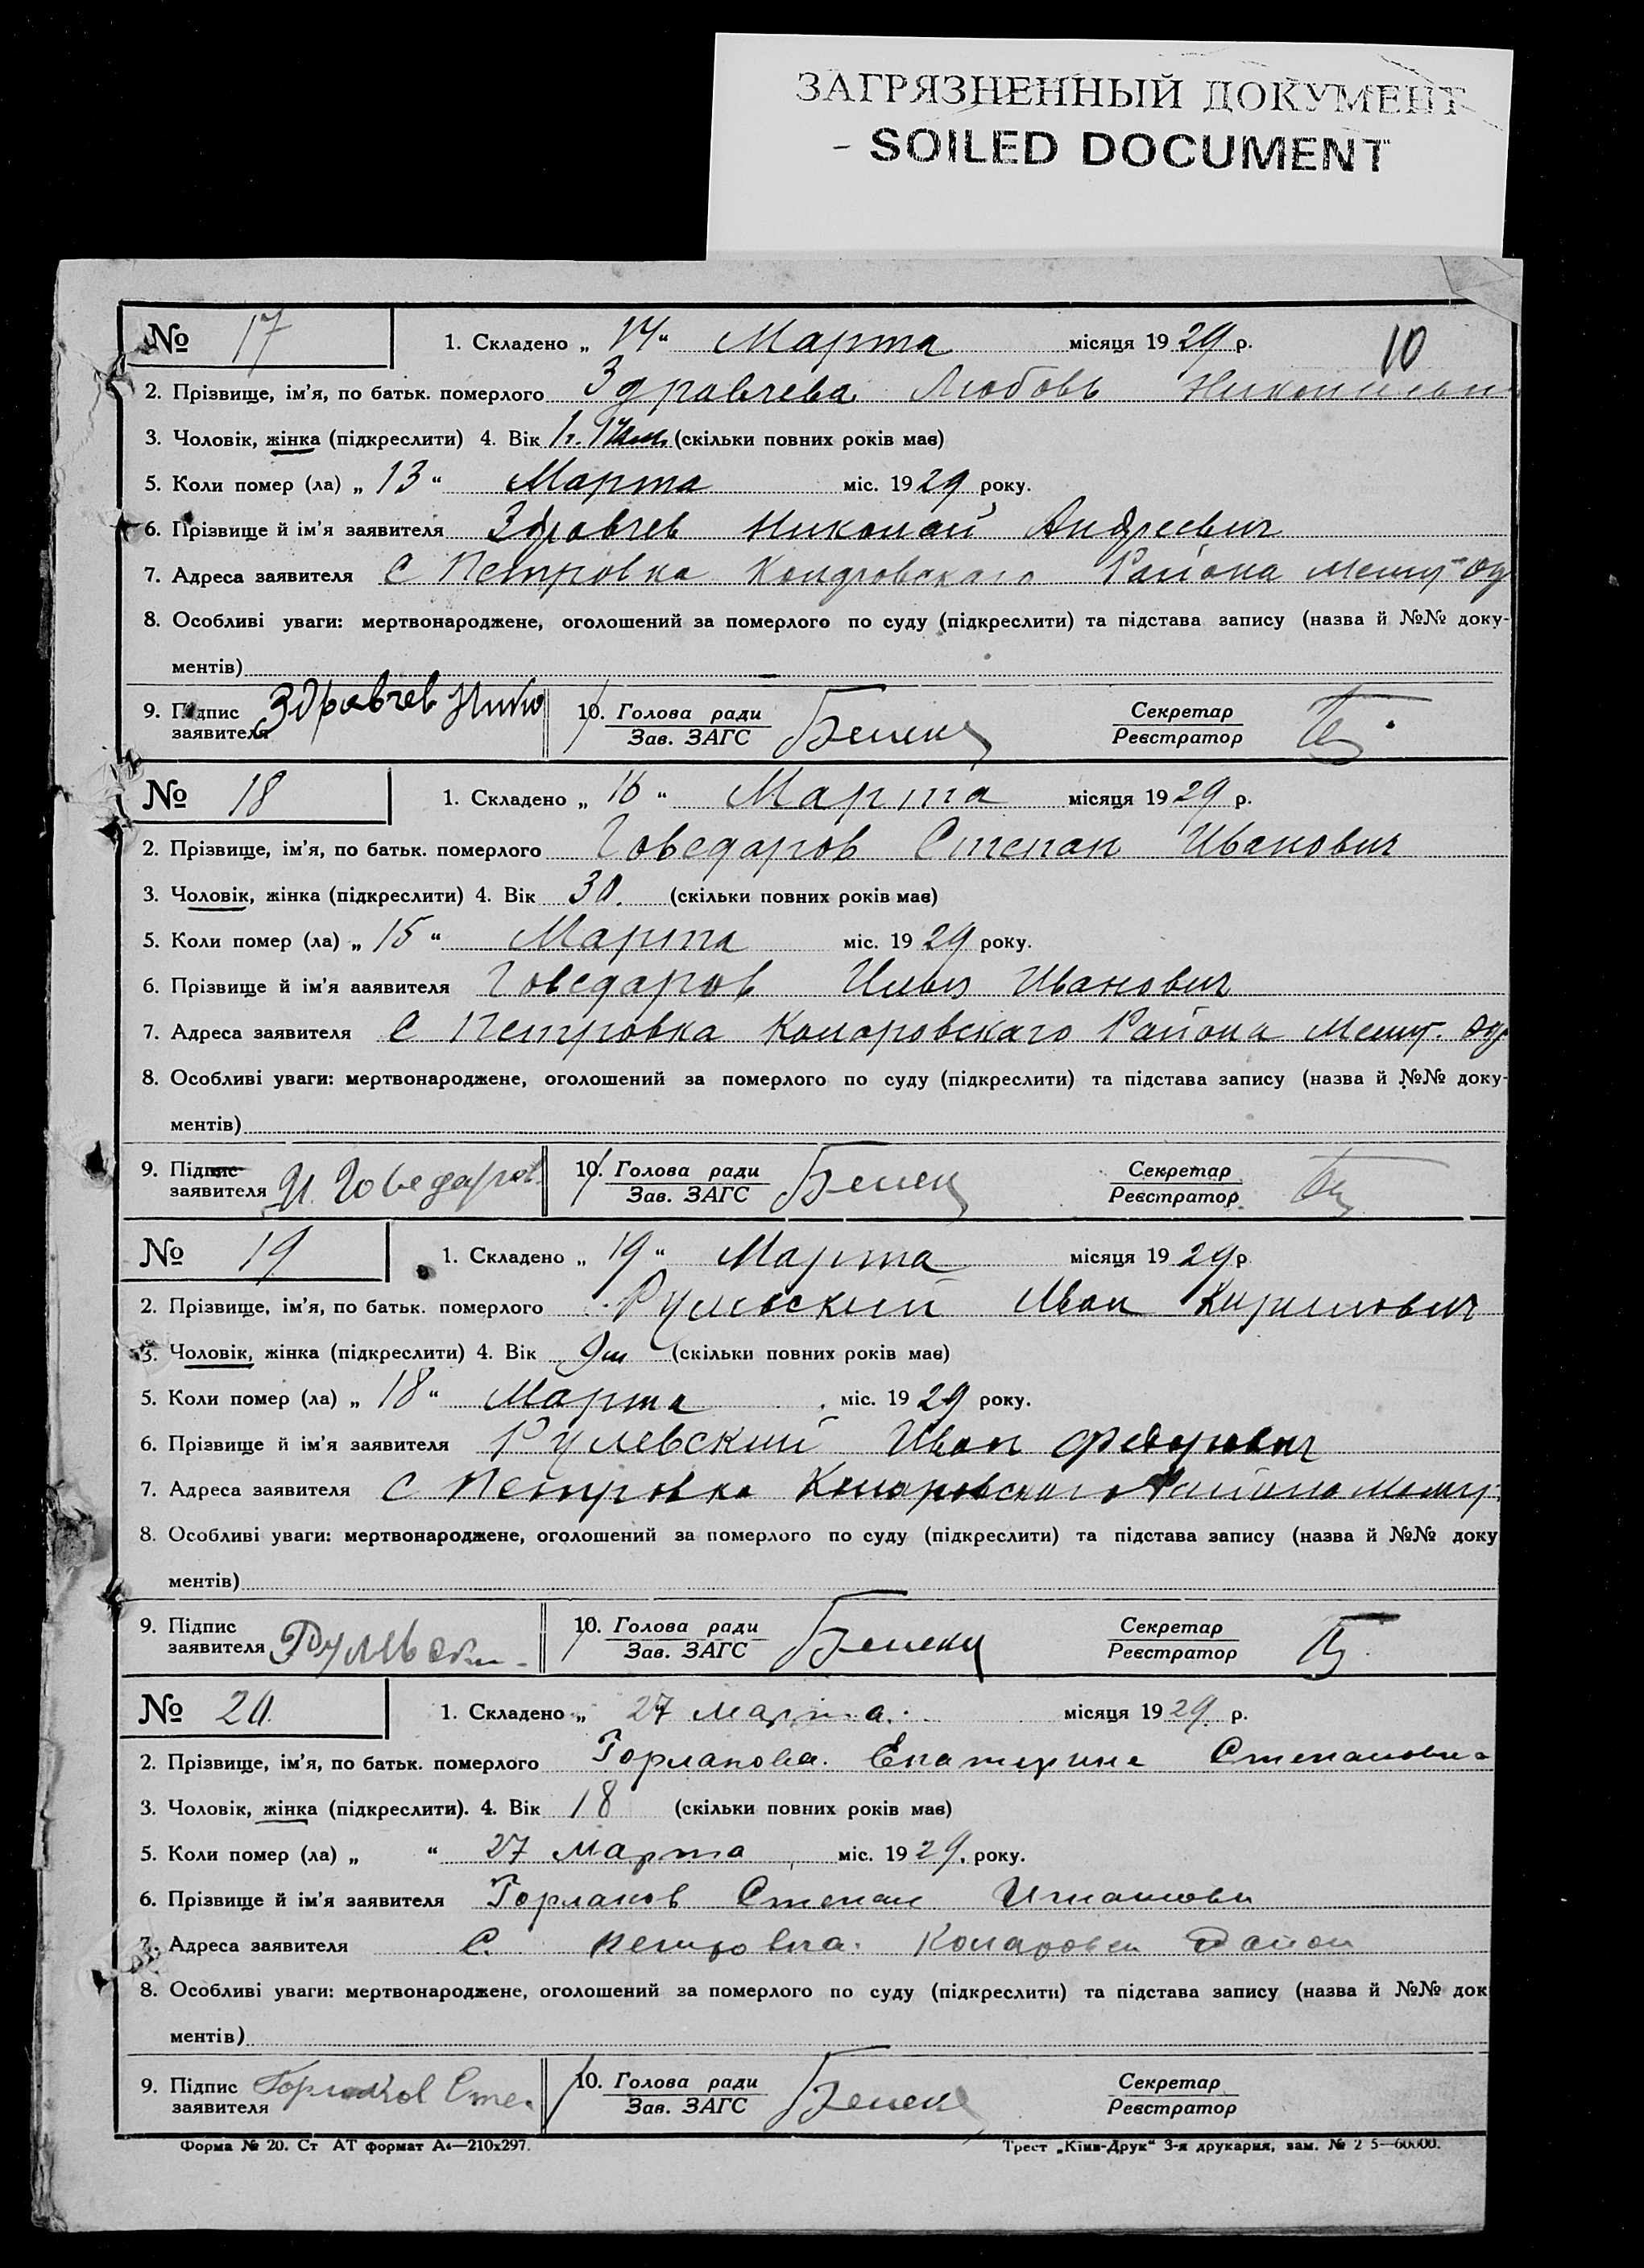 ЗАГРЯЗНЕННЫЙ ДОКУМЕНТ
- SOILED DOCUMENT
10
№ 17 1. Складено „ 14 “ Марта місяця 19 29 р.
2. Прізвище, ім'я, по батьк. померлого Здравчева Любовь
3. Чоловік, жінка (підкреслити) 4. Вік (скільки повних років має)
5. Коли помер (ла) „ 13 “ Марта міс. 19 29 року.
6. Прізвище й ім'я заявителя Здравчев Николай Андреевич
7. Адреса заявителя С Петровка Района
8. Особливі уваги: мертвонароджене, оголошений за померлого по суду (підкреслити) та підстава запису (назва й №№ доку-
ментів)
9. Підпис заявителя Здравчев Нико 10. Голова ради Зав. ЗАГС Секретар Реєстратор
№ 18 1. Складено „ 16 “ Марта місяця 19 29 р.
2. Прізвище, ім'я, по батьк. померлого Говедаров Степан Иванович
3. Чоловік, жінка (підкреслити) 4. Вік 30. (скільки повних років має)
5. Коли помер (ла) „ 15 “ Марта міс. 19 29 року.
6. Прізвище й ім'я заявителя Говедаров Илья Иванович
7. Адреса заявителя С Петровка Коларовскаго Района
8. Особливі уваги: мертвонароджене, оголошений за померлого по суду (підкреслити) та підстава запису (назва й №№ доку-
ментів)
9. Підпис заявителя И Говедаров 10. Голова ради Зав. ЗАГС Секретар Реєстратор
№ 19 1. Складено „ 19 “ Марта місяця 19 29 р
2. Прізвище, ім'я, по батьк. померлого Иван Кирилович
3. Чоловік, жінка (підкреслити) 4. Вік (скільки повних років має)
5. Коли помер (ла) „ 18 “ Марта міс. 19 29 року.
6. Прізвище й ім'я заявителя Рулевский Иван Федорович
7. Адреса заявителя С Петровка Коларовскаго Района
8. Особливі уваги: мертвонароджене, оголошений за померлого по суду (підкреслити) та підстава запису (назва й №№ доку
ментів)
9. Підпис заявителя 10. Голова ради Зав. ЗАГС Секретар Реєстратор
№ 20 1. Складено „ 27 марта місяця 19 29 р.
2. Прізвище, ім'я, по батьк. померлого Горланова Екатерина Степановна
3. Чоловік, жінка (підкреслити). 4. Вік 18 (скільки повних років має)
5. Коли помер (ла) „ “ 27 марта міс. 19 29. року.
6. Прізвище й ім'я заявителя Горланов Степан
7. Адреса заявителя С. Петровка. Район
8. Особливі уваги: мертвонароджене, оголошений за померлого по суду (підкреслити) та підстава запису (назва й №№ док
ментів)
9. Підпис заявителя Сте. 10. Голова ради Зав. ЗАГС Секретар Реєстратор
Форма № 20. Ст АТ формат А4—210х297. Трест „Київ-Друк“ 3-я друкарня, зам. №